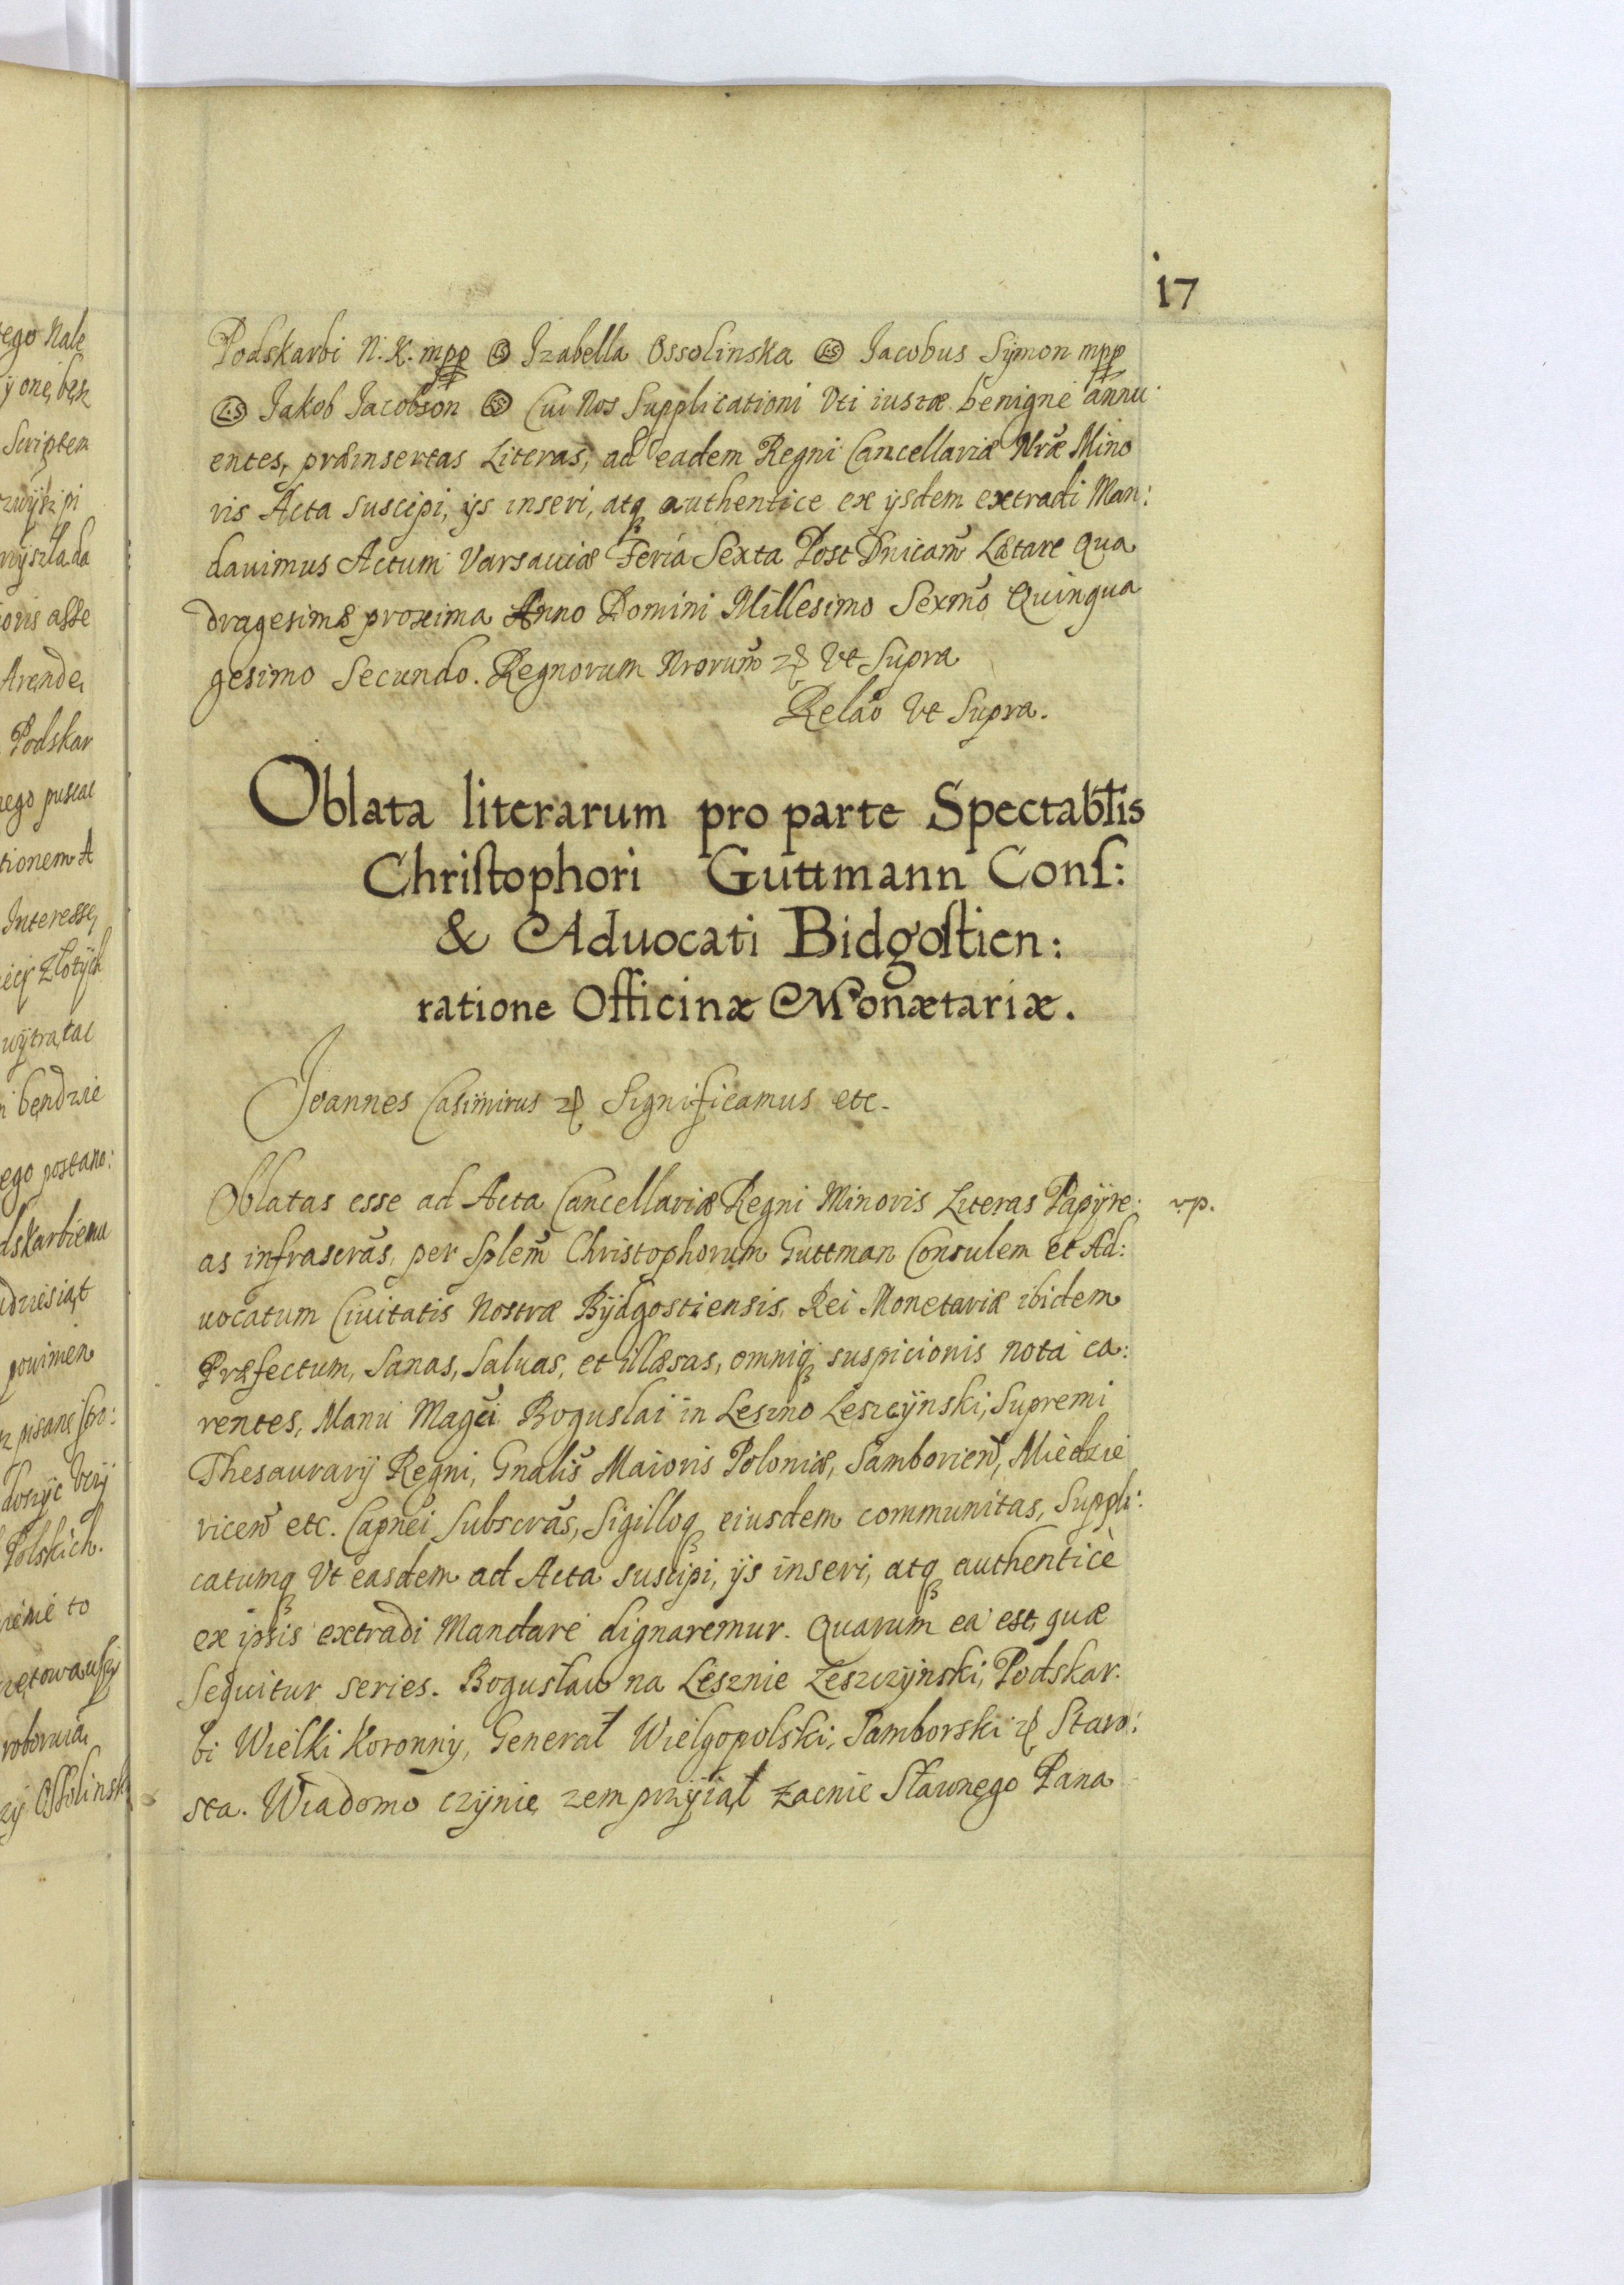 17
Podskarbi N. K. mpp (LS) Izabella Ossolinska (LS) Jacobus Sÿmon mpp
(LS) Jakob Jacobson (LS) Cui Nos Supplicationi Uti iustæ benigne annu
entes, præinsertas Literas, ad eadem Regni Cancellariæ Nræ Mino
ris Acta suscipi, ÿs inseri, atq authentice ex ÿsdem extradi Man:
dauimus Actum Varsauiæ Feria Sexta Post Dnicam Lætare Qua
dragesimæ proxima Anno Domini Millesimo Sexmo Quinqua
gesimo Secundo. Regnorum Nrorum etc Ut Supra
Relao Ut Supra.
Oblata literarum pro parte Spectablis
Christophori Guttmann Cons:
& Aduocati Bidgostien:
ratione Officinæ Monætariæ.
Joannes Casimirus etc Significamus etc.
Oblatas esse ad Acta Cancellariæ Regni Minoris Literas Papÿre: rp.
as infrascras, per Splem Christophorum Guttman Consulem et Ad:
uocatum Ciuitatis Nostræ Bÿdgostiensis, Rei Monetariæ ibidem
Præfectum, Sanas, Saluas, et illæsas, omniq suspicionis nota ca:
rentes, Manu Magci Boguslai in Leszno Leszcÿnski, Supremi
Thesaurarÿ Regni, Gnalis Maioris Poloniæ, Samborien, Miedzie
ricen etc. Capnei Subscras, Sigilloq eiusdem communitas, Suppli:
catumq Ut easdem ad Acta suscipi, ÿs inseri, atq authenticè
ex ipsis extradi Mandare dignaremur. Quarum ea est, quæ
Sequitur series. Bogusław na Lesznie Leszczÿnski, Podskar:
bi Wielki Koronny, Generał Wielgopolski, Samborski etc Staro:
sta. Wiadomo czÿnię, zem przÿiął zacnie Sławnego Pana